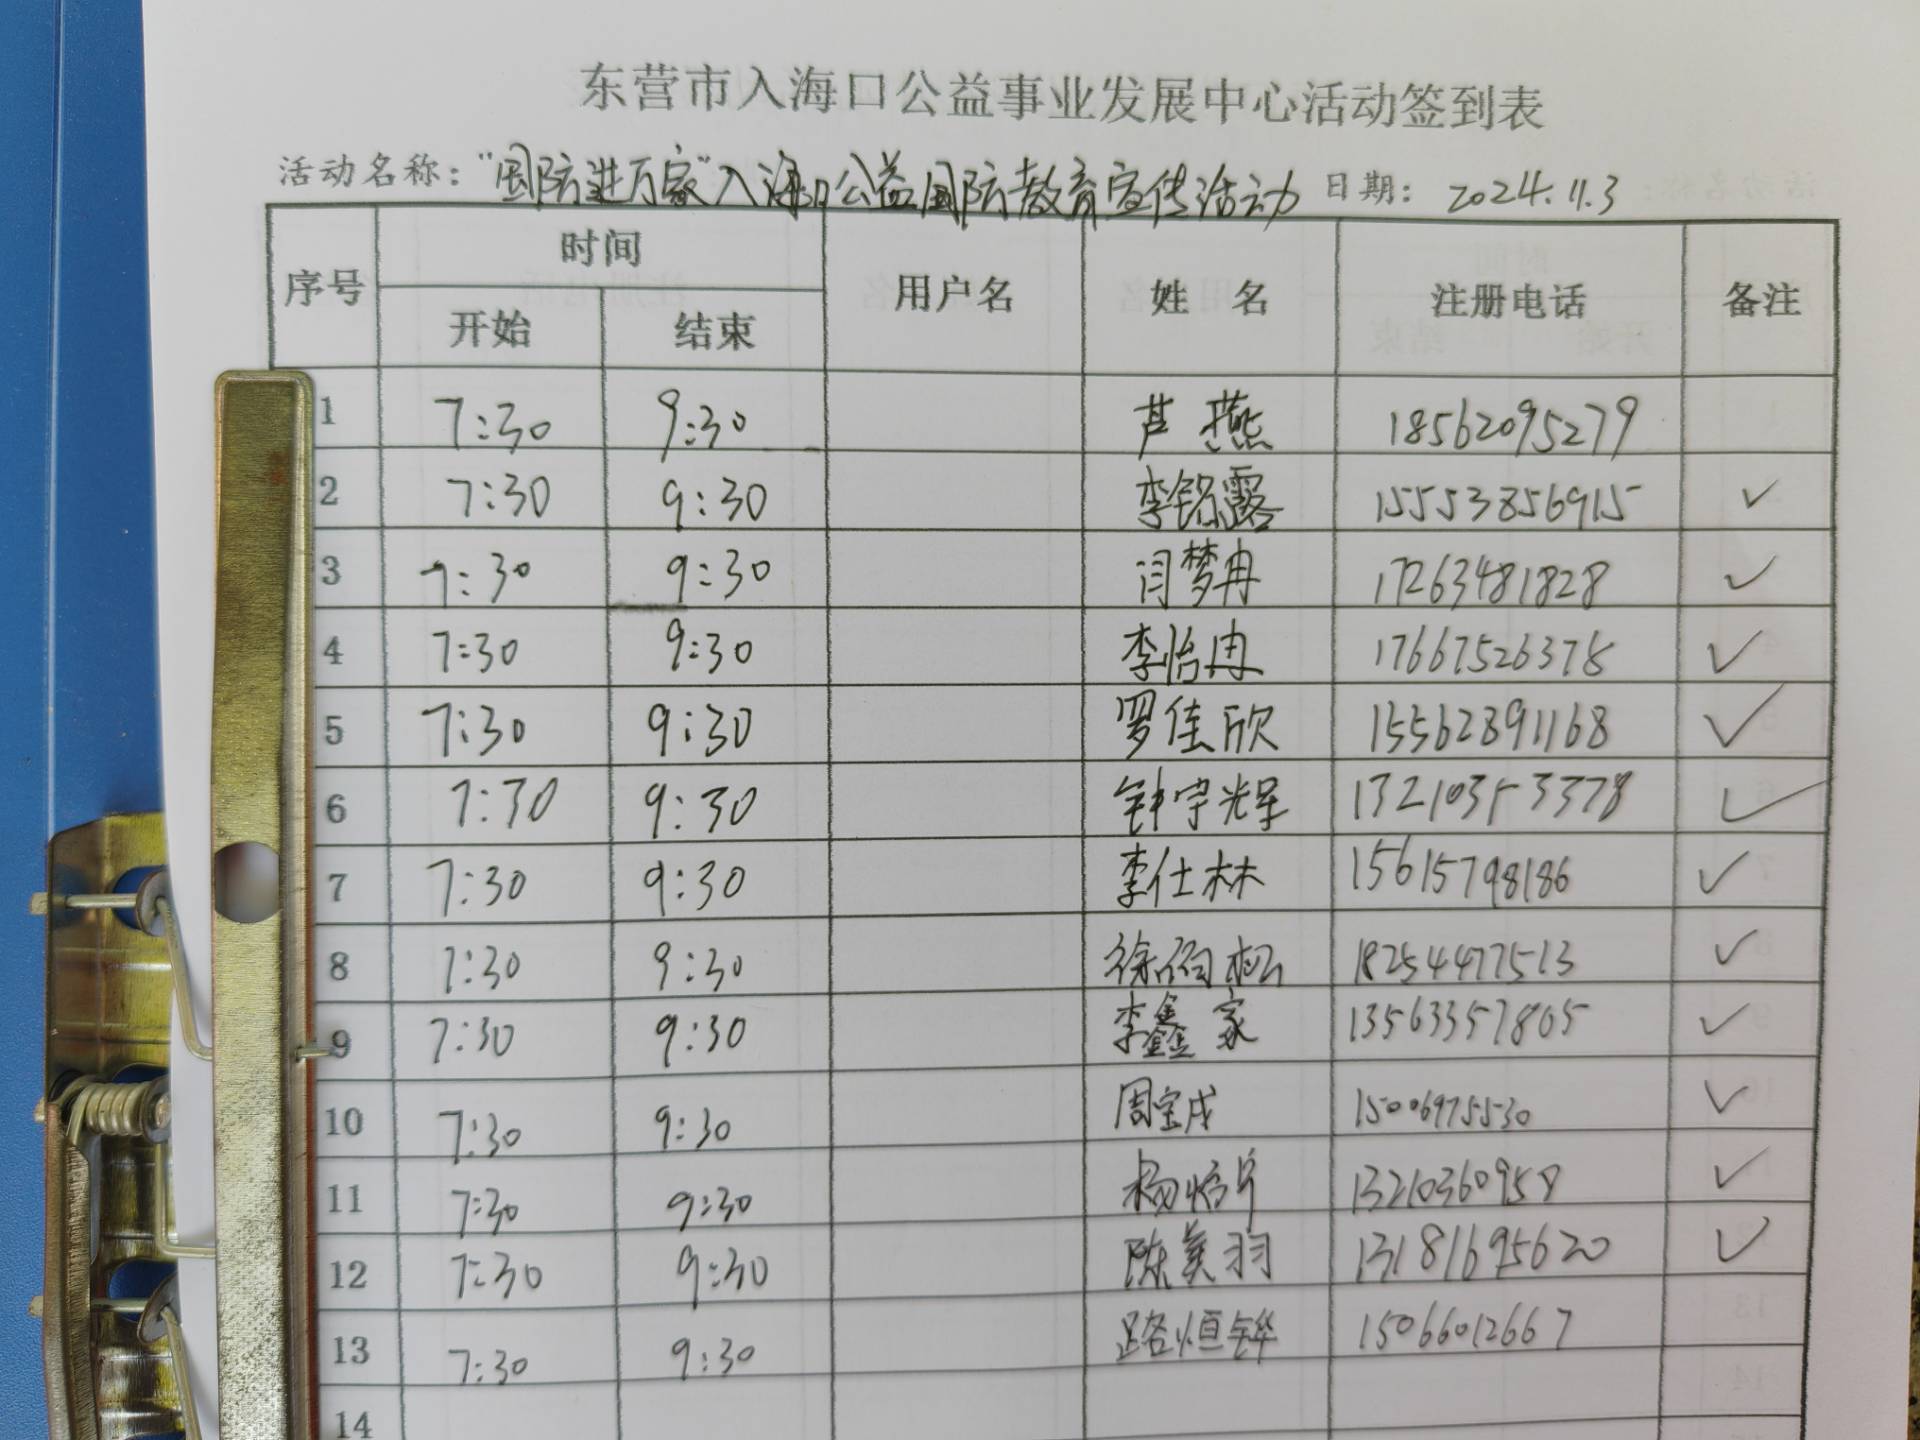 东营市入海口公益事业发展中心活动签到表
活动名称："国防进万家"入海口公益国防教育宣传活动 日期：2024.11.3
序号 时间 用户名 姓名 注册电话 备注
开始 结束
1 7:30 9:30 芦燕 18562095279
2 7:30 9:30 李铭露 15553856915 ✓
3 7:30 9:30 闫梦冉 17263481828 ✓
4 7:30 9:30 李怡冉 17667526378 ✓
5 7:30 9:30 罗佳欣 15562891168 ✓
6 7:30 9:30 钟宇辉 13210353378 ✓
7 7:30 9:30 李仕林 15615798186 ✓
8 7:30 9:30 徐 松 18254477513 ✓
9 7:30 9:30 李鑫家 13563357805 ✓
10 7:30 9:30 周宝成 15006975530 ✓
11 7:30 9:30 杨怡 13210360958 ✓
12 7:30 9:30 陈美羽 13181695620 ✓
13 7:30 9:30 路恒铧 15066012667
14